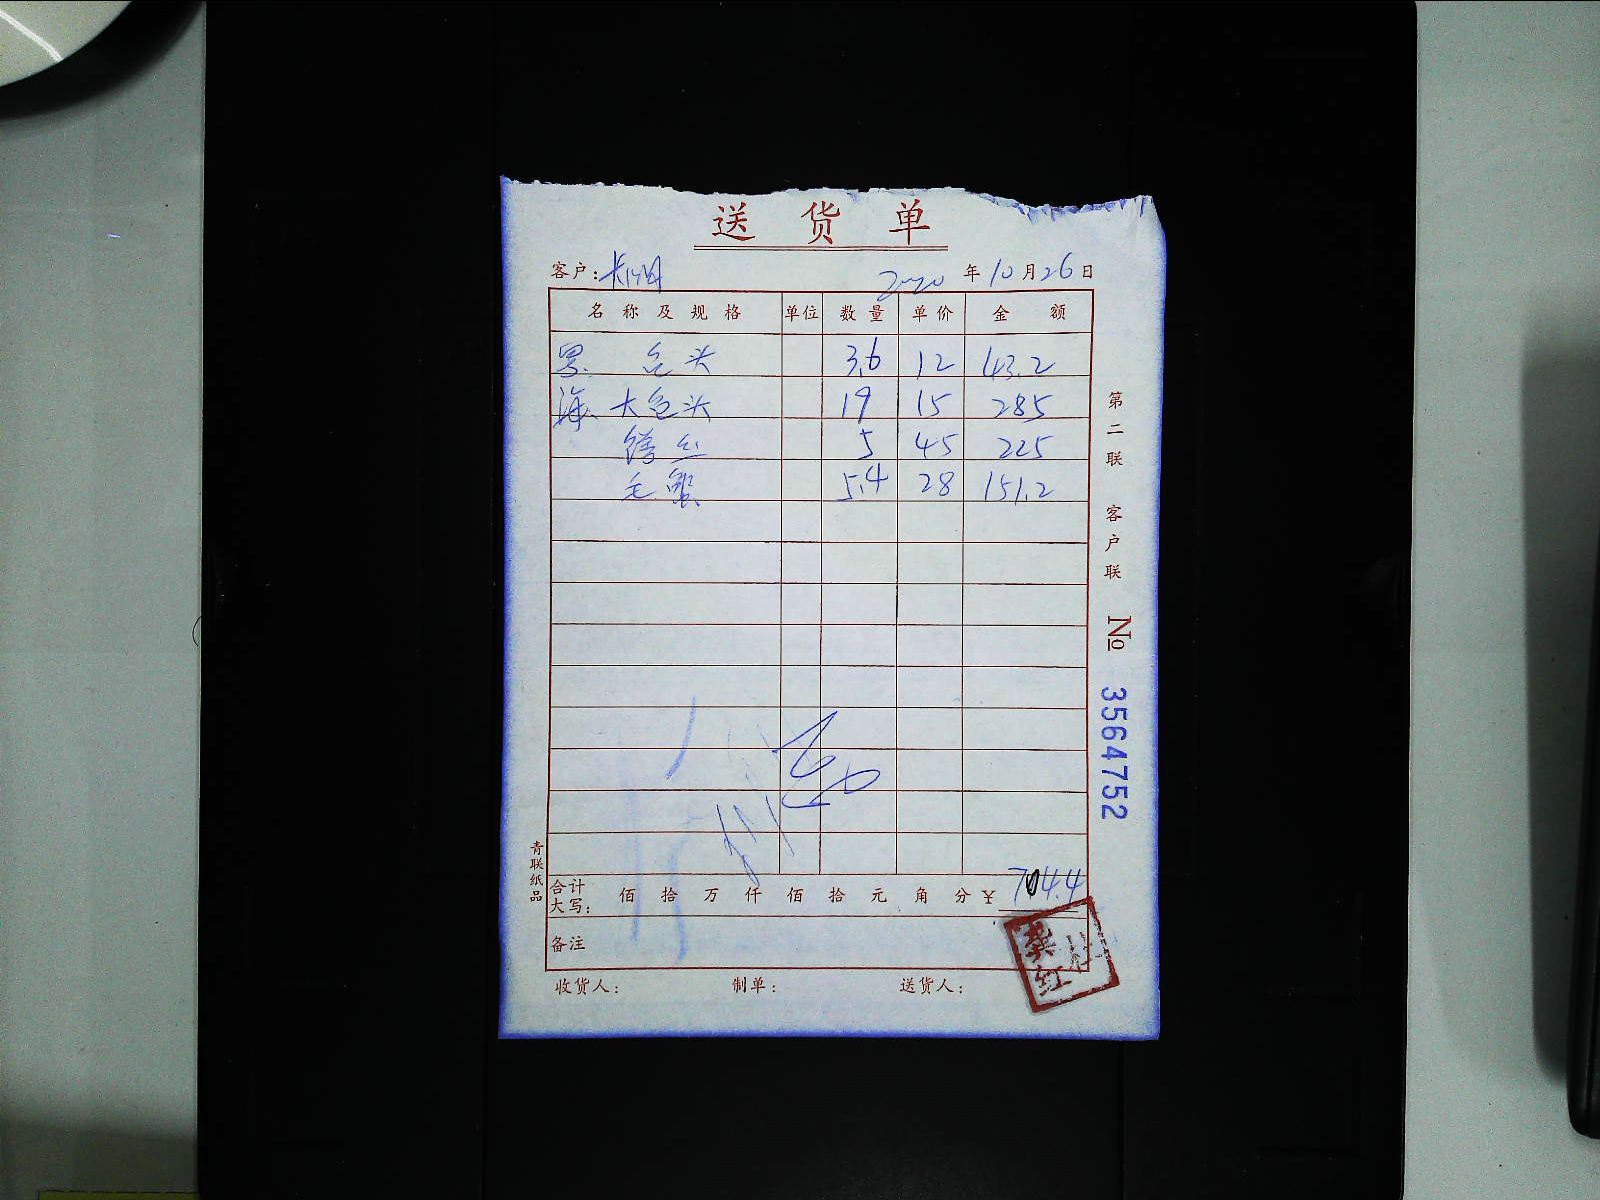 送货单
客户: 2020年10月26日
名称及规格 单位 数量 单价 金额
包头 3.6 12 43.2
海 大包头 19 15 285
丝 5 45 225
毛蟹 5.4 28 151.2
合计大写: 佰 拾 万 仟 佰 拾 元 角 分 ¥ 704.4
备注
收货人: 制单: 送货人:
青联纸品
第二联 客户联 No 3564752
龚红